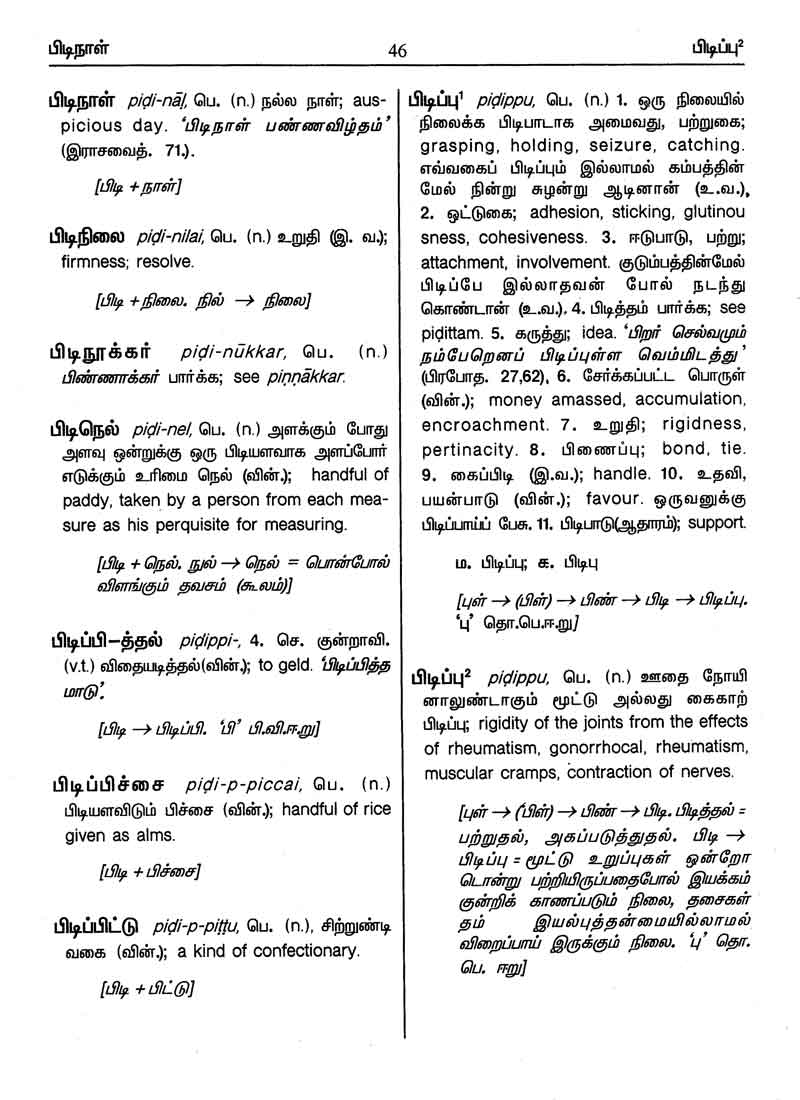 பிடிநாள்
46
பிடிப்பு²
பிடிநாள் piḍi-nāḷ, பெ. (n.) நல்ல நாள்; aus-
picious day. ‘பிடிநாள் பண்ணவிழ்தம்’
(இராசவைத். 71.).
[பிடி + நாள்]
பிடிநிலை piḍi-nilai, பெ. (n.) உறுதி (இ. வ.);
firmness; resolve.
[பிடி + நிலை. நில் → நிலை]
பிடிநூக்கர் piḍi-nūkkar, பெ. (n.)
பிண்ணாக்கர் பார்க்க; see piṇṇākkar.
பிடிநெல் piḍi-nel, பெ. (n.) அளக்கும் போது
அளவு ஒன்றுக்கு ஒரு பிடியளவாக அளப்போர்
எடுக்கும் உரிமை நெல் (வின்.); handful of
paddy, taken by a person from each mea-
sure as his perquisite for measuring.
[பிடி + நெல். நுல் → நெல் = பொன்போல்
விளங்கும் தவசம் (கூலம்)]
பிடிப்பி-த்தல் piḍippi-, 4. செ. குன்றாவி.
(v.t.) விதையடித்தல்(வின்.); to geld. ‘பிடிப்பித்த
மாடு’.
[பிடி → பிடிப்பி. ‘பி’ பி.வி.ஈறு]
பிடிப்பிச்சை piḍi-p-piccai, பெ. (n.)
பிடியளவிடும் பிச்சை (வின்.); handful of rice
given as alms.
[பிடி + பிச்சை]
பிடிப்பிட்டு piḍi-p-piṭṭu, பெ. (n.), சிற்றுண்டி
வகை (வின்.); a kind of confectionary.
[பிடி + பிட்டு]
பிடிப்பு¹ piḍippu, பெ. (n.) 1. ஒரு நிலையில்
நிலைக்க பிடிபாடாக அமைவது, பற்றுகை;
grasping, holding, seizure, catching.
எவ்வகைப் பிடிப்பும் இல்லாமல் கம்பத்தின்
மேல் நின்று சுழன்று ஆடினான் (உ.வ.),
2. ஒட்டுகை; adhesion, sticking, glutinou
sness, cohesiveness. 3. ஈடுபாடு, பற்று;
attachment, involvement. குடும்பத்தின்மேல்
பிடிப்பே இல்லாதவன் போல் நடந்து
கொண்டான் (உ.வ.). 4. பிடித்தம் பார்க்க; see
piḍittam. 5. கருத்து; idea. ‘பிறர் செல்வமும்
நம்பேறெனப் பிடிப்புள்ள வெம்மிடத்து’
(பிரபோத. 27,62), 6. சேர்க்கப்பட்ட பொருள்
(வின்.); money amassed, accumulation,
encroachment. 7. உறுதி; rigidness,
pertinacity. 8. பிணைப்பு; bond, tie.
9. கைப்பிடி (இ.வ.); handle. 10. உதவி,
பயன்பாடு (வின்.); favour. ஒருவனுக்கு
பிடிப்பாய்ப் பேசு. 11. பிடிபாடு(ஆதாரம்); support.
ம. பிடிப்பு; க. பிடிபு
[புள் → (பிள்) → பிண் → பிடி → பிடிப்பு.
‘பு’ தொ.பெ.ஈறு]
பிடிப்பு² piḍippu, பெ. (n.) ஊதை நோயி
னாலுண்டாகும் மூட்டு அல்லது கைகாற்
பிடிப்பு; rigidity of the joints from the effects
of rheumatism, gonorrhocal, rheumatism,
muscular cramps, contraction of nerves.
[புள் → (பிள்) → பிண் → பிடி. பிடித்தல் =
பற்றுதல், அகப்படுத்துதல். பிடி →
பிடிப்பு = மூட்டு உறுப்புகள் ஒன்றோ
டொன்று பற்றியிருப்பதைபோல் இயக்கம்
குன்றிக் காணப்படும் நிலை, தசைகள்
தம் இயல்புத்தன்மையில்லாமல்
விறைப்பாய் இருக்கும் நிலை. ‘பு’ தொ.
பெ. ஈறு]